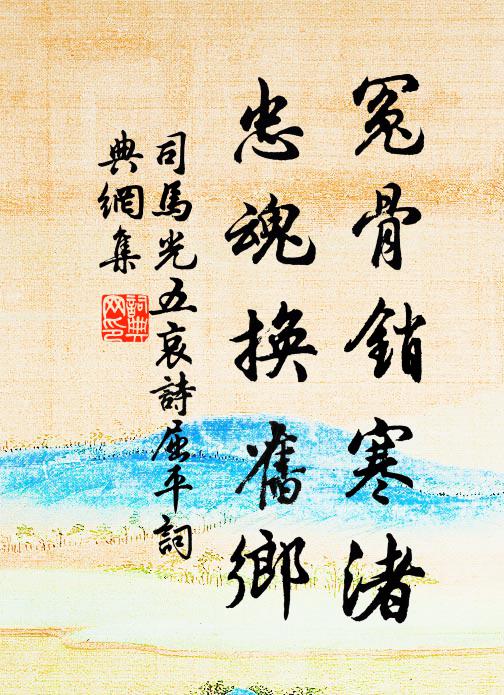 冤骨銷寒渚
忠魂換舊鄉
司馬光五哀詩屈平詞
典網集
詞典網印